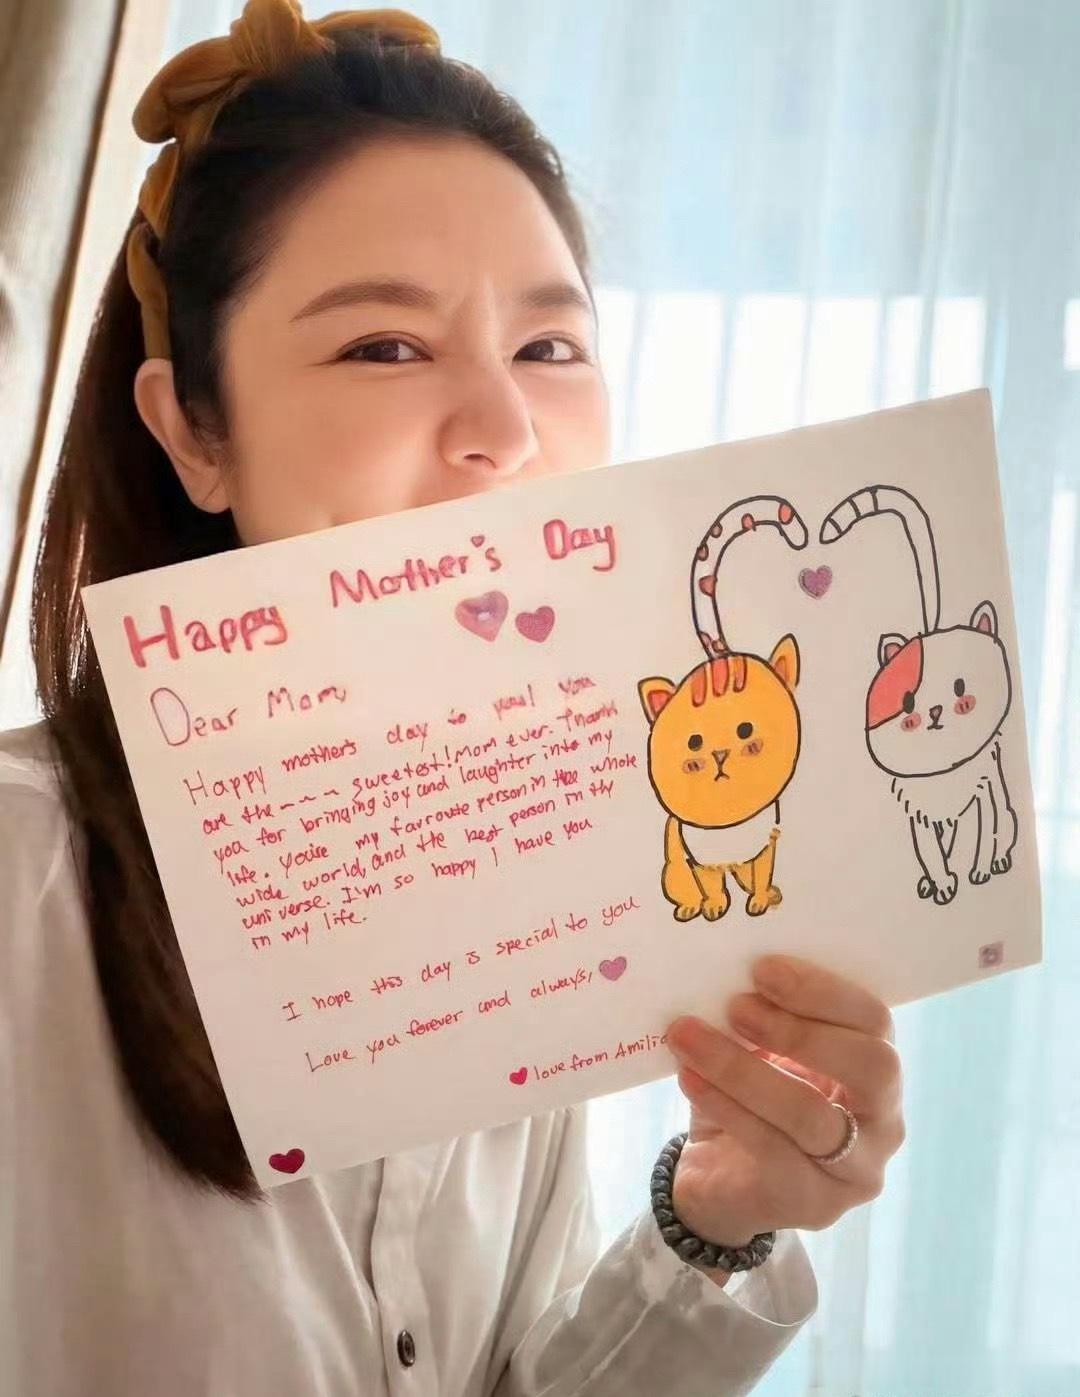 Happy Mother's Day
Dear Mom,
Happy mother's day to you! You
are the ~ ~ ~ sweetest! Mom ever. Thank
you for bringing joy and laughter into my
life. You're my favroute person in the whole
wide world, and the best person in thy
universe. I'm so happy I have you
in my life.
I hope this day is special to you
Love you forever and always,
love from Amilia